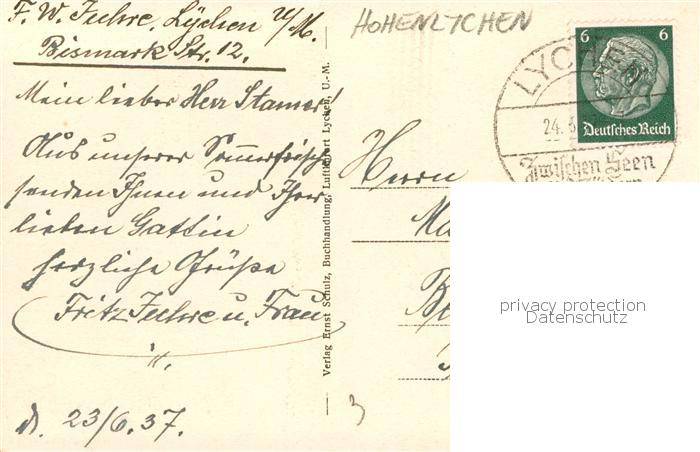 F. W. Juhre, Lychen U/M.
Bismark Str. 12.
Mein lieber Herr Stamer!
Aus unserer Sommerfrische
senden Ihnen und Ihrer
lieben Gattin
herzliche Grüße
Fritz Juhre u. Frau
d. 23/6.37.
Verlag Ernst Schulz, Buchhandlung, Luftkurort Lychen, U.-M.
HOHENLYCHEN
6 6
Deutsches Reich
LYCHEN
24.
Zwischen Seen
Herrn
privacy protection
Datenschutz
3